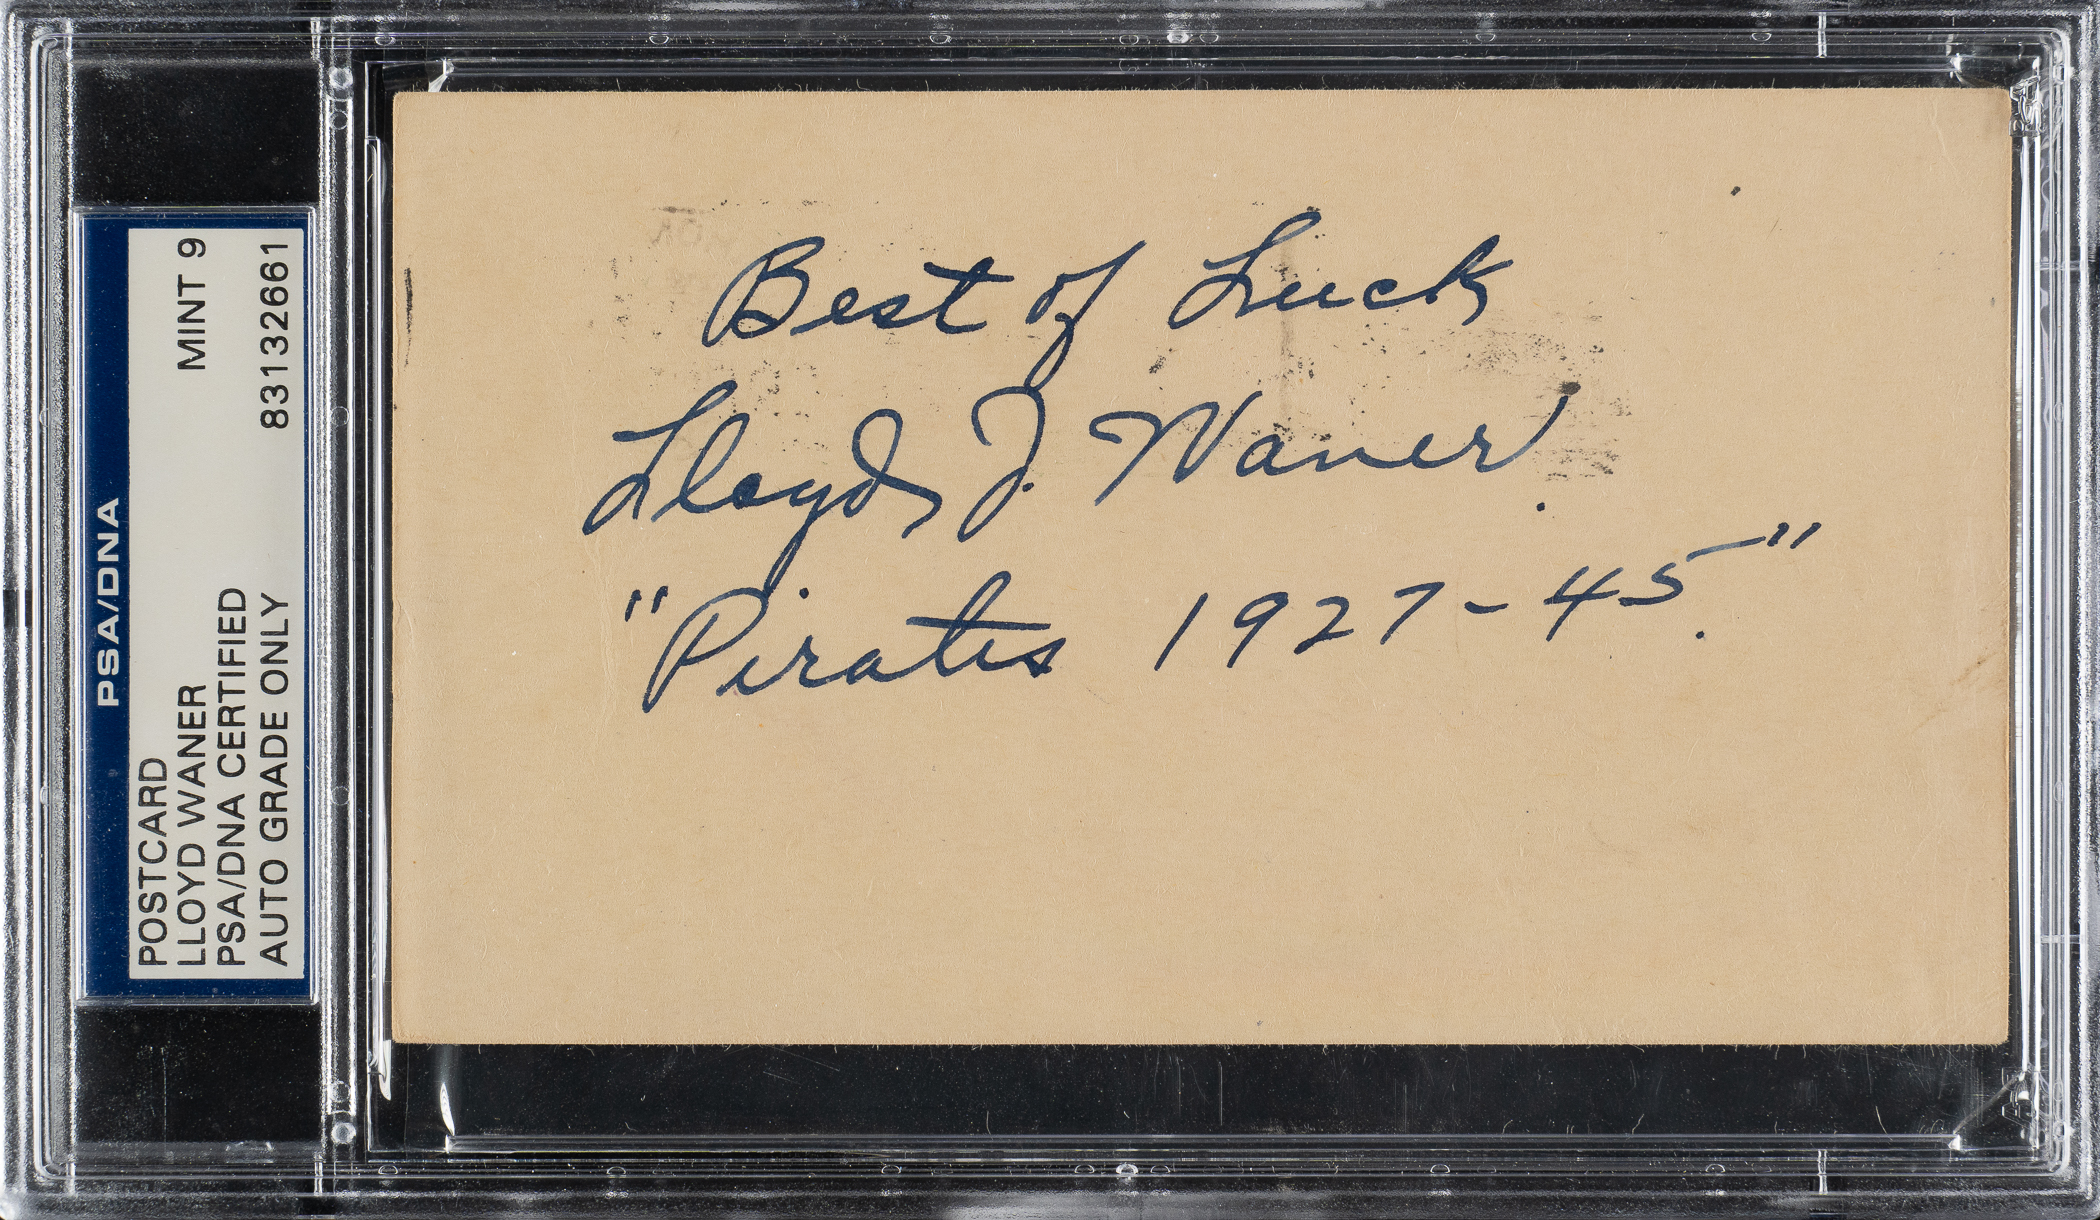 PSA/DNA
POSTCARD
LLOYD WANER
PSA/DNA CERTIFIED
AUTO GRADE ONLY
MINT 9
83132661
Best of Luck
Lloyd J. Waner.
"Pirates 1927-45."